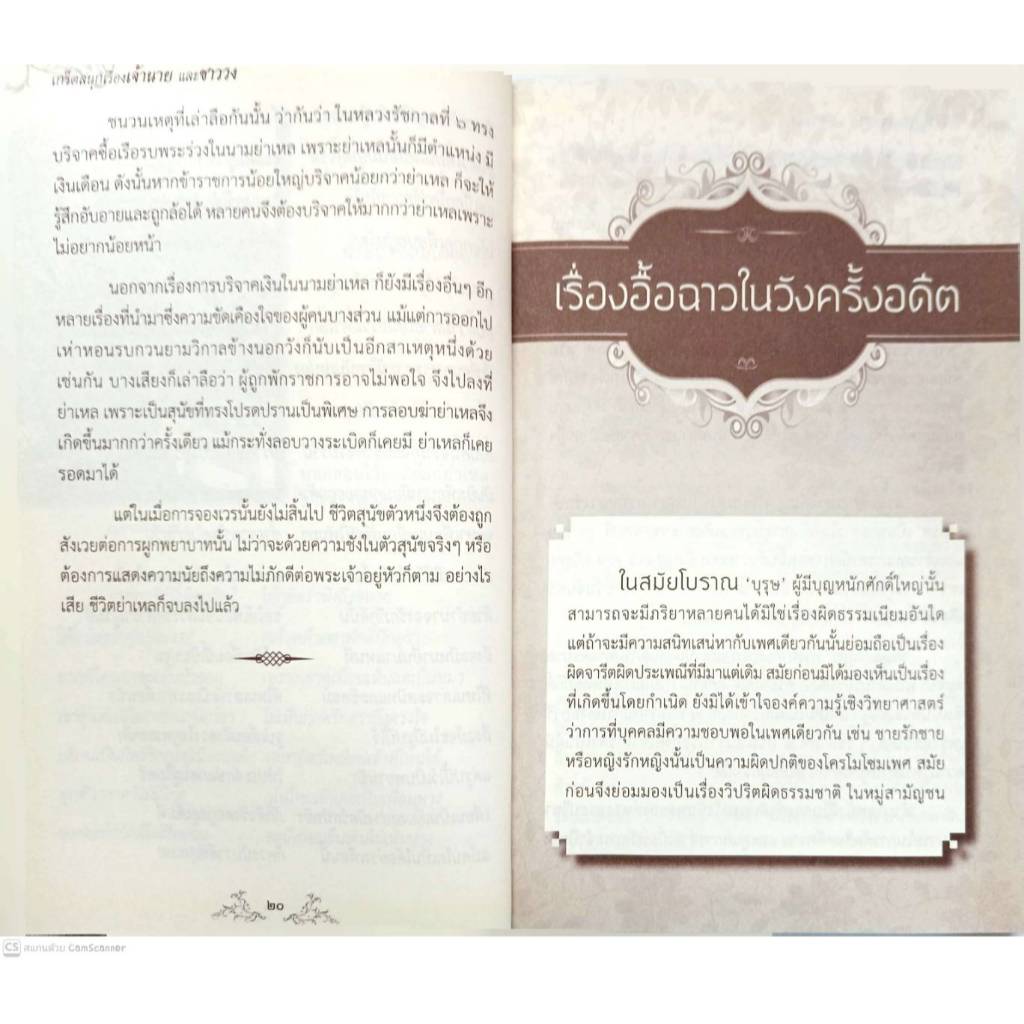 เกร็ดสนุกเรื่องเจ้านาย และชาววัง
ชนวนเหตุที่เล่าลือกันนั้น ว่ากันว่า ในหลวงรัชกาลที่ ๖ ทรง
บริจาคซื้อเรือรบพระร่วงในนามย่าเหล เพราะย่าเหลนั้นก็มีตำแหน่ง มี
เงินเดือน ดังนั้นหากข้าราชการน้อยใหญ่บริจาคน้อยกว่าย่าเหล ก็จะให้
รู้สึกอับอายและถูกล้อได้ หลายคนจึงต้องบริจาคให้มากกว่าย่าเหลเพราะ
ไม่อยากน้อยหน้า
นอกจากเรื่องการบริจาคเงินในนามย่าเหล ก็ยังมีเรื่องอื่นๆ อีก
หลายเรื่องที่นำมาซึ่งความขัดเคืองใจของผู้คนบางส่วน แม้แต่การออกไป
เห่าหอนรบกวนยามวิกาลข้างนอกวังก็นับเป็นอีกสาเหตุหนึ่งด้วย
เช่นกัน บางเสียงก็เล่าลือว่า ผู้ถูกพักราชการอาจไม่พอใจ จึงไปลงที่
ย่าเหล เพราะเป็นสุนัขที่ทรงโปรดปรานเป็นพิเศษ การลอบฆ่าย่าเหลจึง
เกิดขึ้นมากกว่าครั้งเดียว แม้กระทั่งลอบวางระเบิดก็เคยมี ย่าเหลก็เคย
รอดมาได้
แต่ในเมื่อการจองเวรนั้นยังไม่สิ้นไป ชีวิตสุนัขตัวหนึ่งจึงต้องถูก
สังเวยต่อการผูกพยาบาทนั้น ไม่ว่าจะด้วยความชังในตัวสุนัขจริงๆ หรือ
ต้องการแสดงความนัยถึงความไม่ภักดีต่อพระเจ้าอยู่หัวก็ตาม อย่างไร
เสีย ชีวิตย่าเหลก็จบลงไปแล้ว
๒๐
เรื่องอื้อฉาวในวังครั้งอดีต
ในสมัยโบราณ ‘บุรุษ’ ผู้มีบุญหนักศักดิ์ใหญ่นั้น
สามารถจะมีภริยาหลายคนได้มิใช่เรื่องผิดธรรมเนียมอันใด
แต่ถ้าจะมีความสนิทเสน่หากับเพศเดียวกันนั้นย่อมถือเป็นเรื่อง
ผิดจารีตผิดประเพณีที่มีมาแต่เดิม สมัยก่อนมิได้มองเห็นเป็นเรื่อง
ที่เกิดขึ้นโดยกำเนิด ยังมิได้เข้าใจองค์ความรู้เชิงวิทยาศาสตร์
ว่าการที่บุคคลมีความชอบพอในเพศเดียวกัน เช่น ชายรักชาย
หรือหญิงรักหญิงนั้นเป็นความผิดปกติของโครโมโซมเพศ สมัย
ก่อนจึงย่อมมองเป็นเรื่องวิปริตผิดธรรมชาติ ในหมู่สามัญชน
CS สแกนด้วย CamScanner